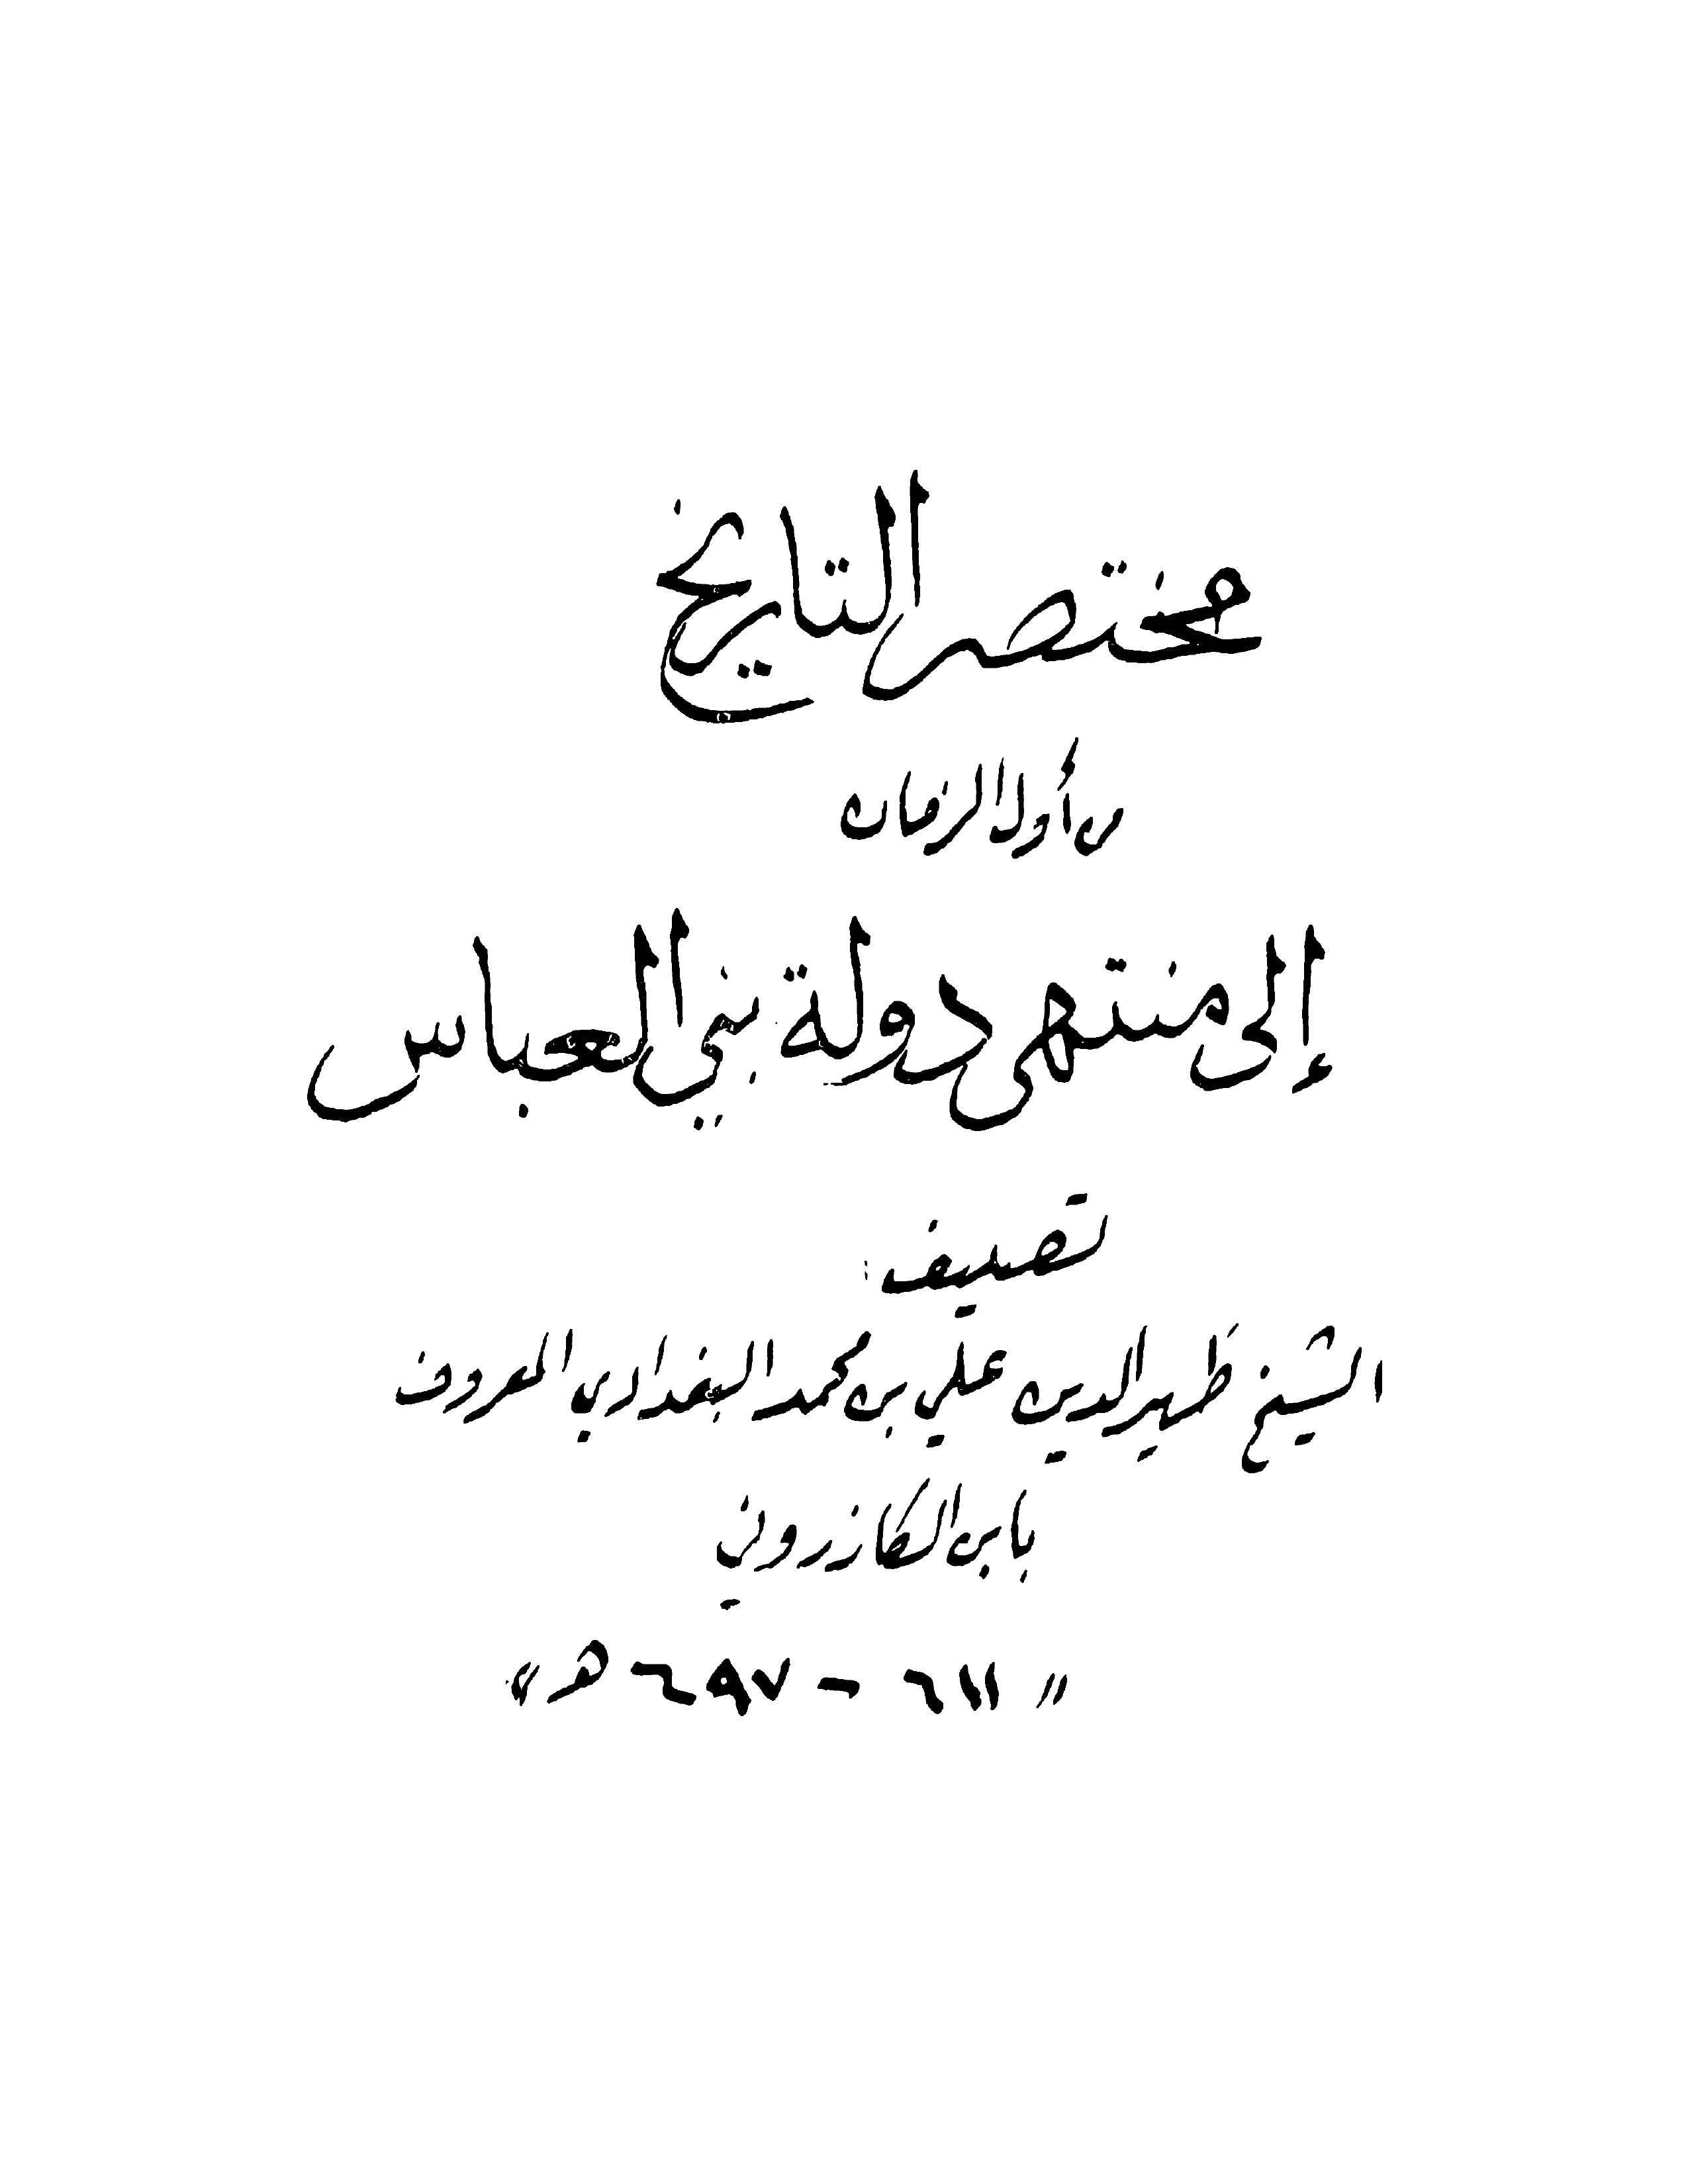 مختصر التاريخ
من أول الزمان
إلى منتهى دولة بني العباس
تصنيف :
الشيخ ظهير الدين علي بن محمد البغدادي المعروف
بابن الكازروني
« ٦١١ - ٦٩٧ هـ »